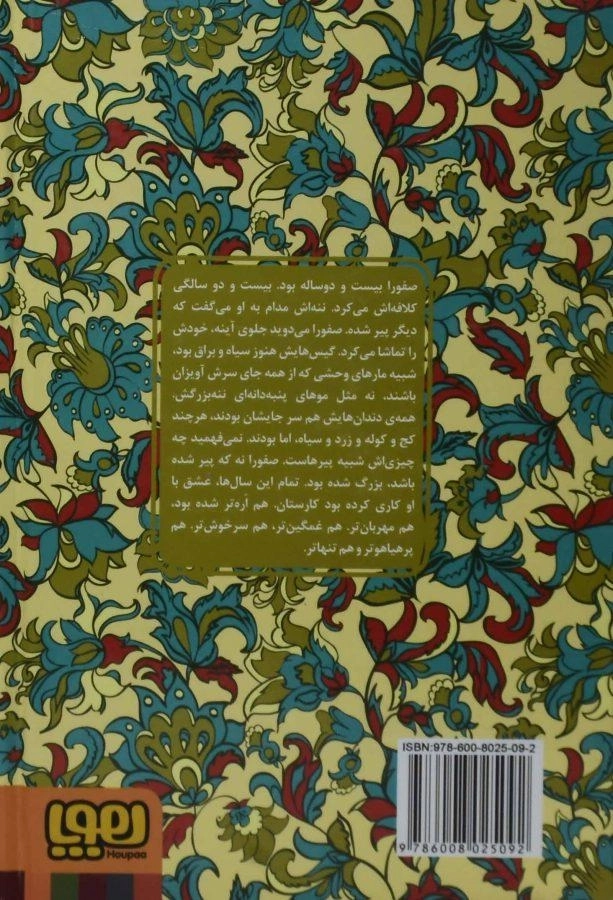 صفورا بیست و دوساله بود. بیست و دو سالگی
کلافه‌اش می‌کرد. ننه‌اش مدام به او می‌گفت که
دیگر پیر شده. صفورا می‌دوید جلوی آینه، خودش
را تماشا می‌کرد. گیس‌هایش هنوز سیاه و براق بود،
شبیه مارهای وحشی که از همه جای سرش آویزان
باشند، نه مثل موهای پنبه‌دانه‌ای ننه‌بزرگش.
همه‌ی دندان‌هایش هم سر جایشان بودند، هرچند
کج و کوله و زرد و سیاه، اما بودند. نمی‌فهمید چه
چیزی‌اش شبیه پیرهاست. صفورا نه که پیر شده
باشد، بزرگ شده بود. تمام این سال‌ها، عشق با
او کاری کرده بود کارستان. هم اَره‌تر شده بود،
هم مهربان‌تر. هم غمگین‌تر، هم سرخوش‌تر. هم
پرهیاهوتر و هم تنهاتر.
ISBN:978-600-8025-09-2
9 786008 025092
هوپا
Houpaa